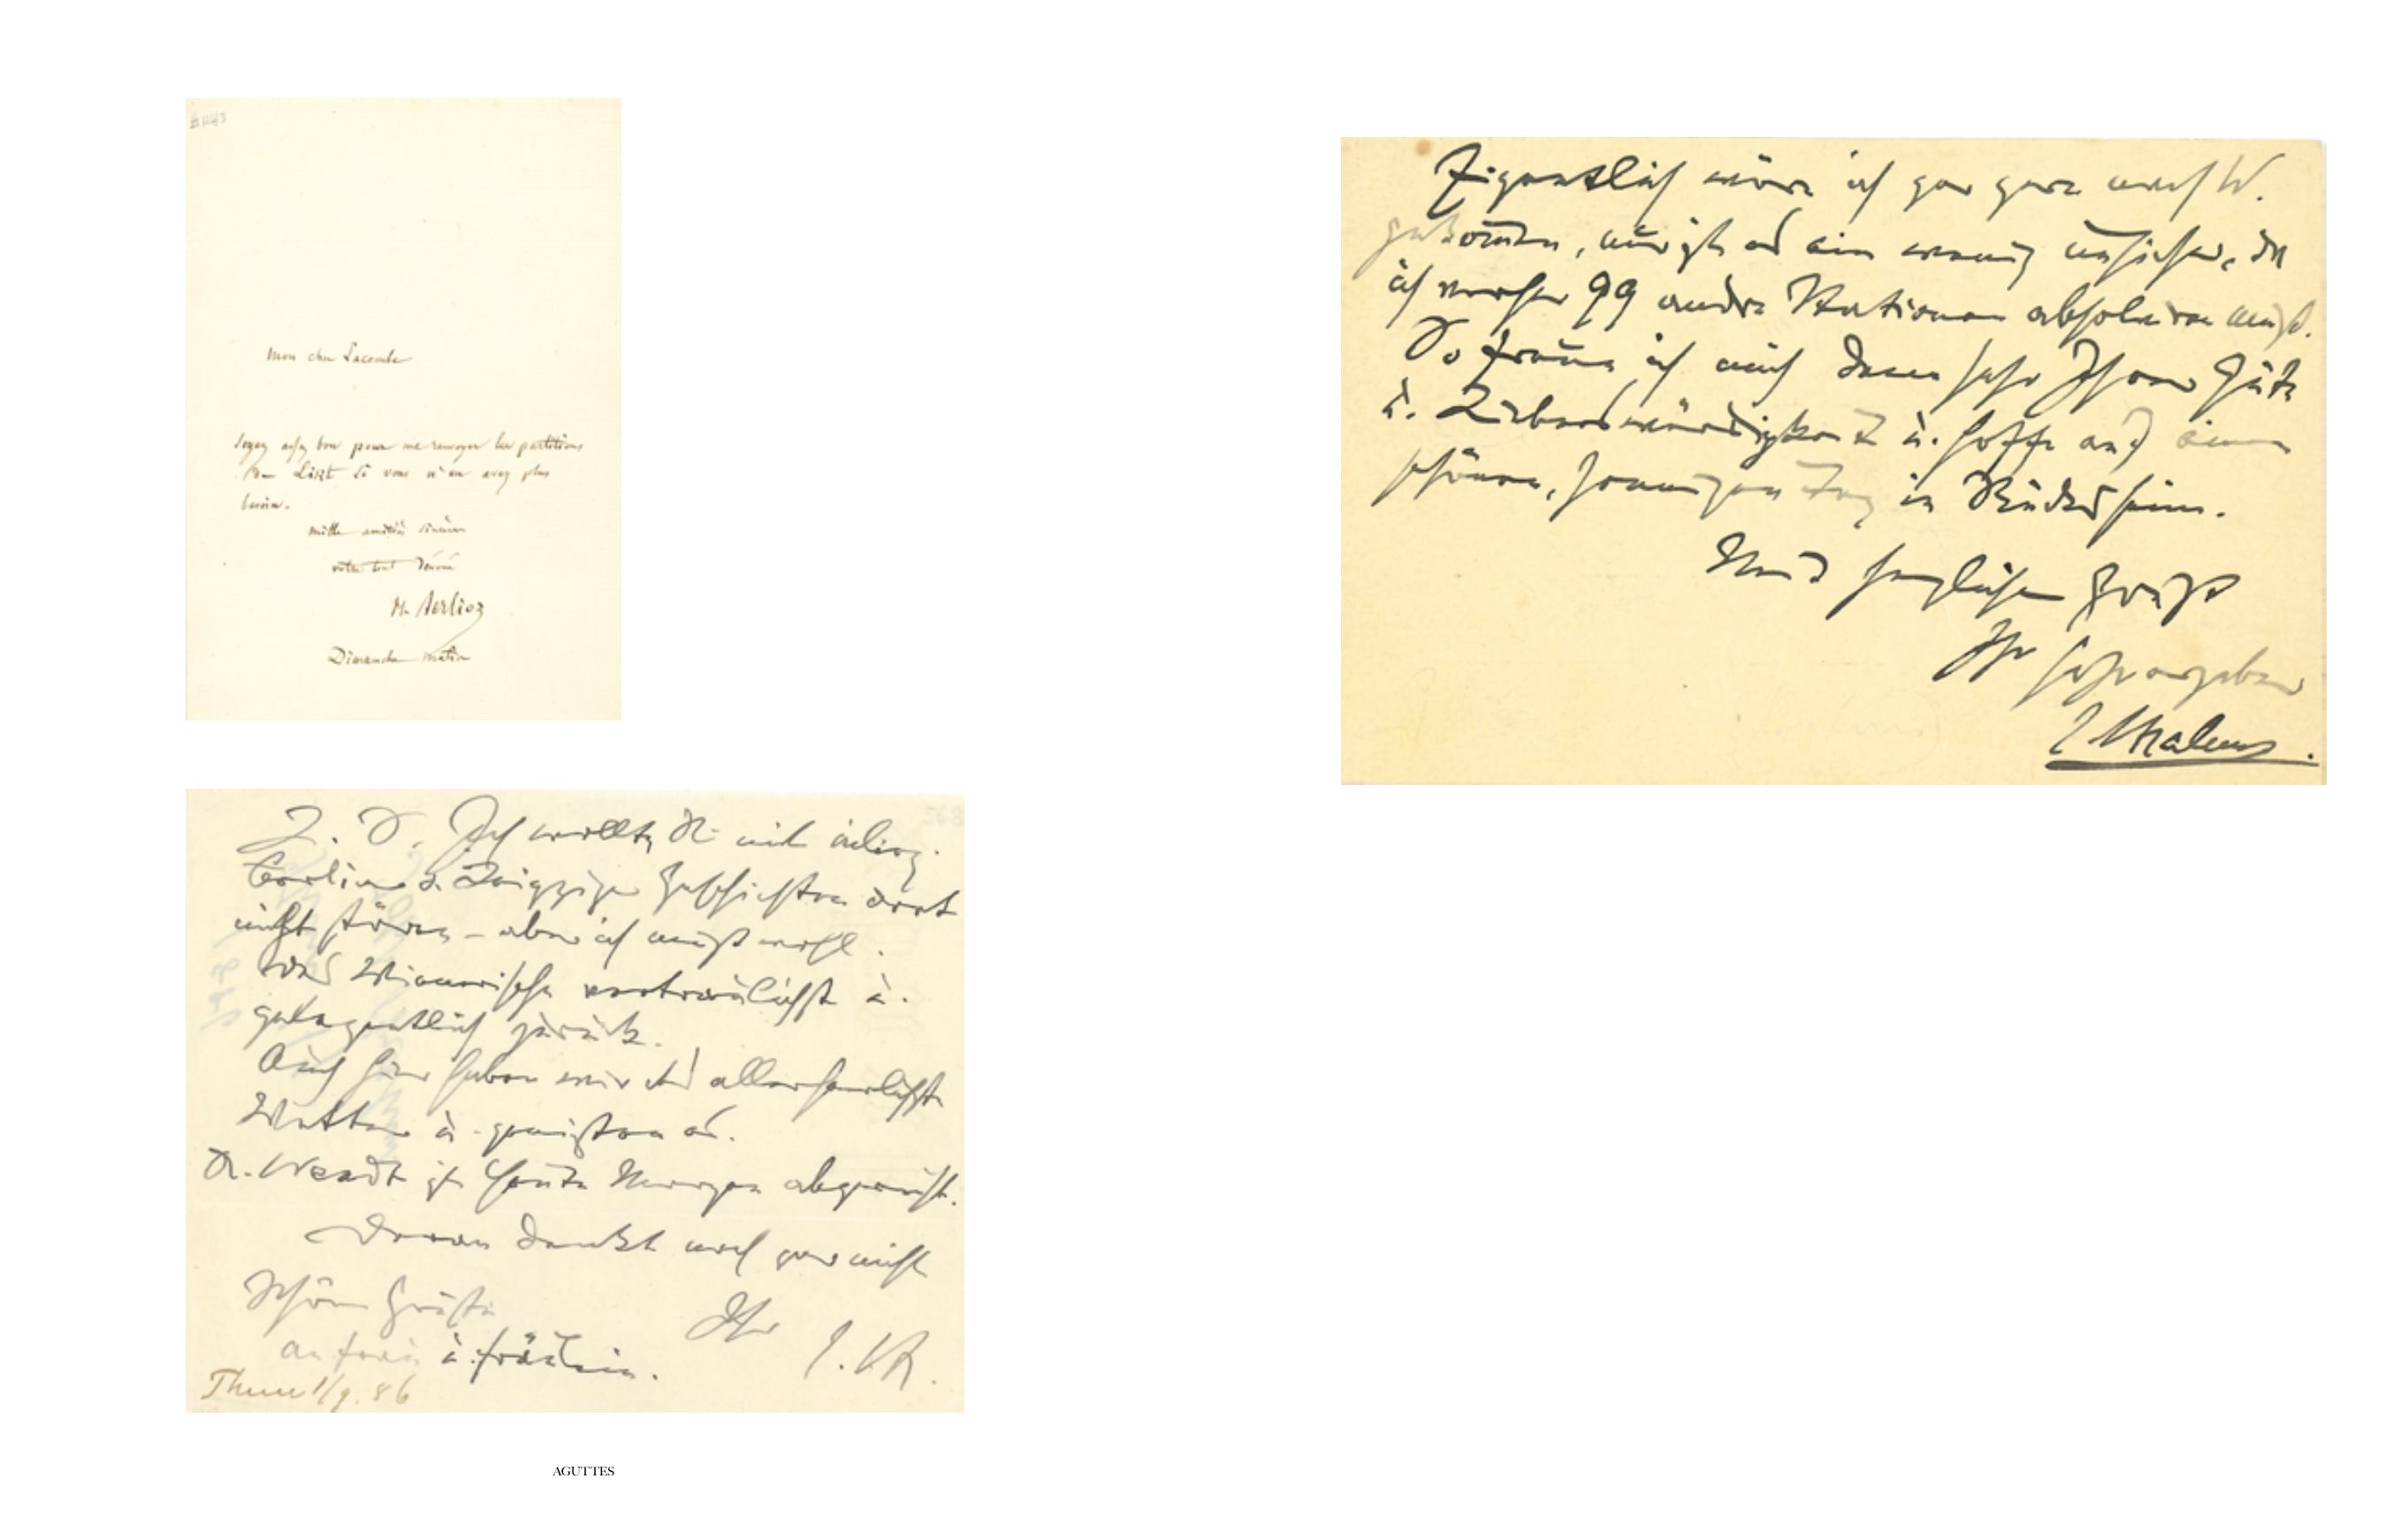 Mon cher Lacombe
Soyez assez bon pour me renvoyer les partitions
de Liszt si vous n'en avez plus
besoin.
mille amitiés sincères
votre tout dévoué
H. Berlioz
Dimanche matin
L. F. Ich wollte Sie mit
Berliner u. Leipziger Geschichten dort
nicht stören – aber ich muß wohl.
Das Wienerische vertraulichst u.
gelegentlich zurück.
Auch hier haben wir das allerherrlichste
Wetter u. genießen es.
Dr. Wendt ist heute Morgen abgereist.
Daran denkt noch gar nicht
Schöne Grüße
Ihr J. Br.
an Frau u. Fräulein.
Thun 1/9. 86
Eigentlich wäre ich gar gern nach W.
gekommen, nur ist es ein wenig unsicher, da
ich vorher 99 andre Stationen absolviren muß.
So freue ich mich denn sehr Ihrer Güte
u. Liebenswürdigkeit u. hoffe auf einen
schönen, sonnigen Tag in Rüdesheim.
Mit herzlichem Gruß
Ihr sehr ergebener
J. Brahms.
AGUTTES